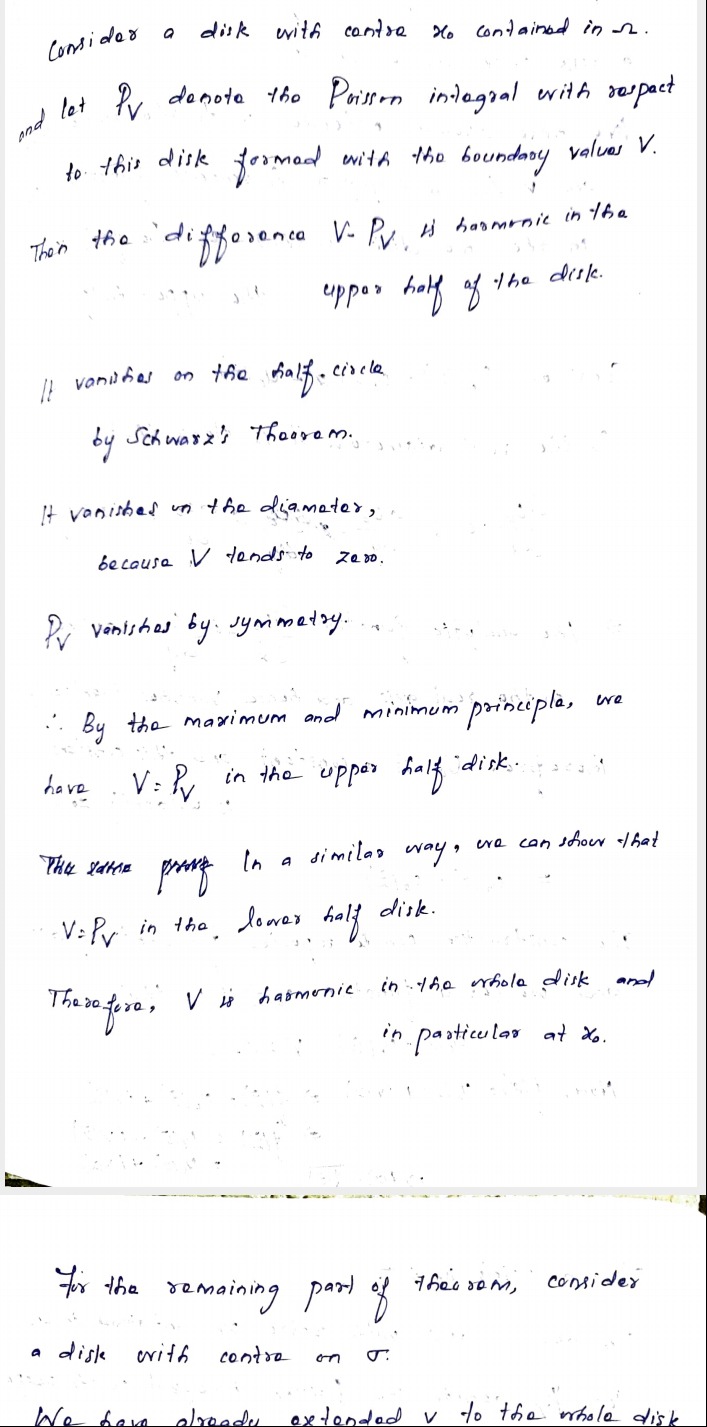 Consider a disk with centre x₀ contained in Ω.
and let P_V denote the Poisson integral with respect
to this disk formed with the boundary values V.
Then the difference V - P_V is harmonic in the
upper half of the disk.
It vanishes on the half-circle
by Schwarz's Theorem.
It vanishes on the diameter,
because V tends to zero.
P_V vanishes by symmetry.
∴ By the maximum and minimum principle, we
have V = P_V in the upper half disk.
In a similar way, we can show that
V = P_V in the lower half disk.
Therefore, V is harmonic in the whole disk and
in particular at x₀.
For the remaining part of theorem, consider
a disk with centre on σ.
We have already extended v to the whole disk